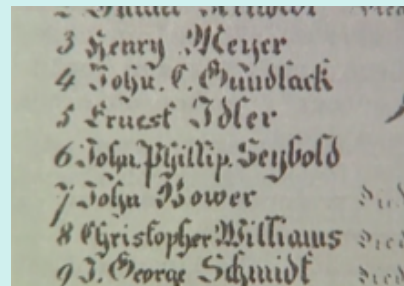 3 Henry Meyer
4 John. C. Gundlack
5 Ernest Idler
6 John. Phillip. Seybold
7 John Bower
8 Christopher Williams Died
9 J. George Schmidt